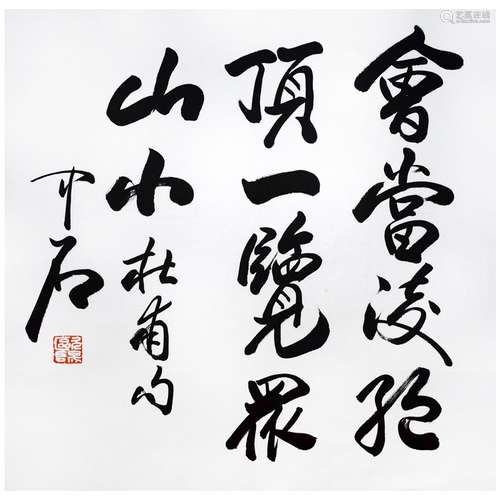 會當凌絕
頂一覽眾
山小杜甫句
中石